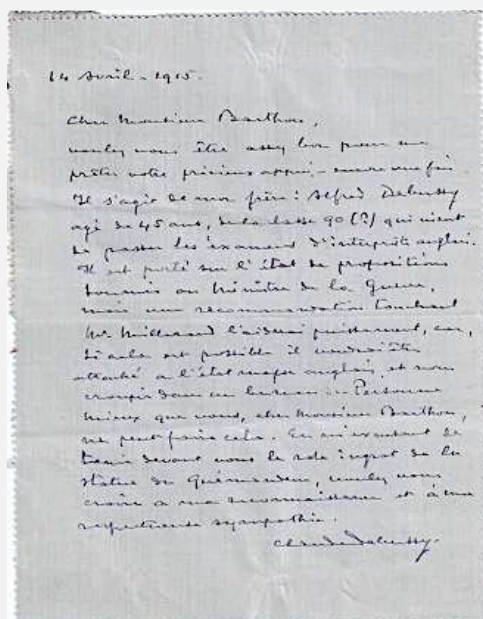 14 Avril - 1915.
Cher Monsieur Barthou,
voulez vous être assez bon pour me
prêter votre précieux appui - encore une fois.
Il s'agit de mon frère : Alfred Debussy
agé de 45 ans, de la classe 90 (?) qui vient
de passer les examens d'interprète anglais.
Il est porté sur l'état de propositions
soumis au Ministre de la Guerre,
mais une recommandation touchant
Mr Millerand l'aiderait puissamment, car,
si cela est possible il voudrait être
attaché à l'état major anglais, et non
croupir dans un bureau. Personne
mieux que vous, cher Monsieur Barthou,
ne peut faire cela. En m'excusant de
tenir devant vous le role ingrat de la
statue du Quémandeur, voulez vous
croire à ma reconnaissance et à ma
respectueuse sympathie.
Claude Debussy.